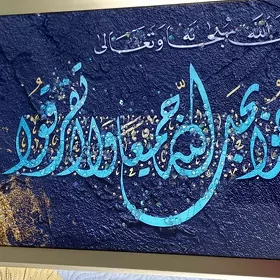 الله سبحانه وتعالى
بحبل الله جميعا ولا تفرقوا